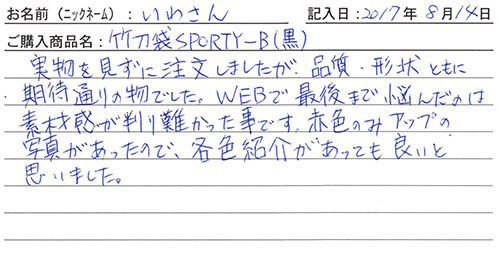 お名前（ニックネーム）：いわさん 記入日：2017年8月14日
ご購入商品名：竹刀袋SPORTY-B(黒)
実物を見ずに注文しましたが、品質・形状ともに
期待通りの物でした。WEBで最後まで悩んだのは
素材感が判り難かった事です。赤色のみアップの
写真があったので、各色紹介があっても良いと
思いました。